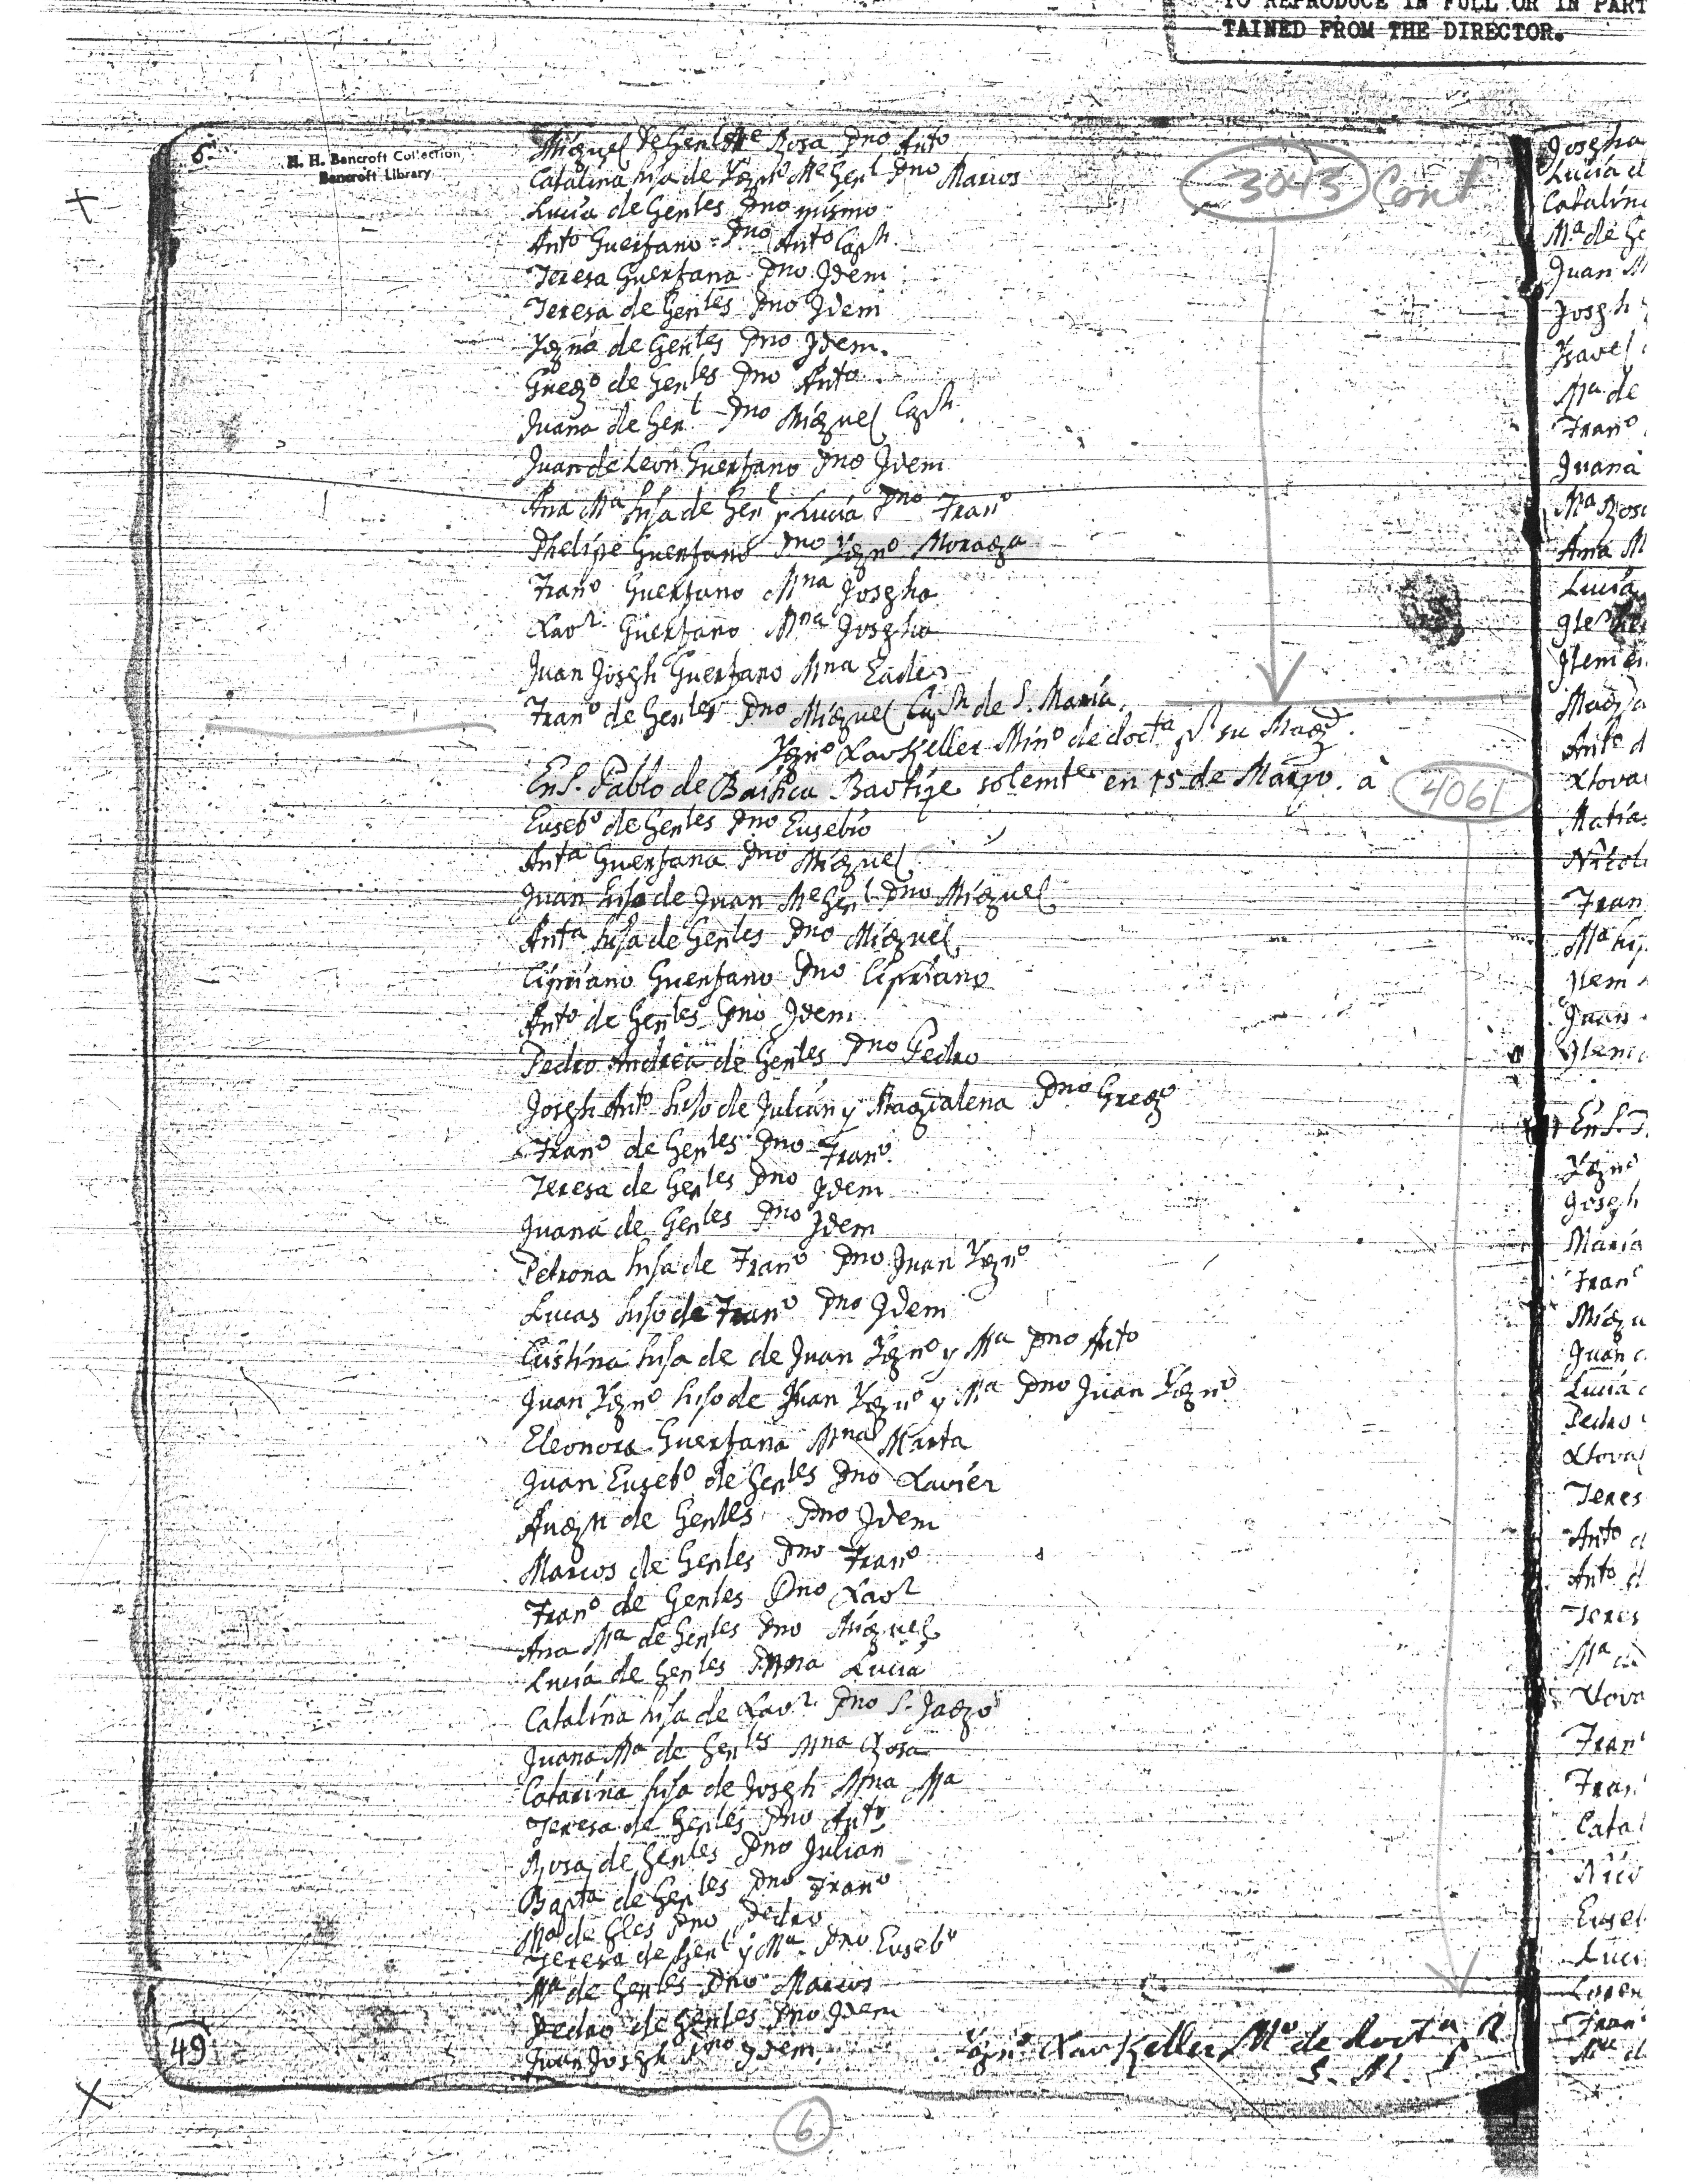 TO REPRODUCE IN FULL OR IN PART
TAINED FROM THE DIRECTOR.
H. H. Bancroft Collection
Bancroft Library
3043 Cont
Miguel de Gentls Me Rosa Pno Anto
Catalina hija de Ygno Me Genl Pno Marcos
Lucia de Gentles Pno mismo
Anto Guerfano = Pno Anto Capn
Teresa Guerfana Pno Jdem
Teresa de Gentles Pno Jdem
Ygna de Gentles Pno Jdem.
Grego de Gentles Pno Anto
Juana de Gent Pno Miguel Capn.
Juan de Leon Guerfano Pno Jdem
Ana Ma hija de Genl y Lucia Pno Frano
Phelipe Guerfano Pno Ygno Moraga
Frano Guerfano Mna Josepha
Xavr Guerfano Mna Josepha
Juan Joseph Guerfano Mna Eadem
Frano de Gentles Pno Miguel Capn de S. Maria.
Ygno Xav Keller Mino de docta pr su Magd.
En S. Pablo de Baibcu Bautize solemte en 15 de Marzo. à
4061
Eusebo de Gentles Pno Eusebio
Anta Guerfana Pno Miguel
Juan hijo de Juan Me Genl Pno Miguel
Anta hija de Gentles Pno Miguel
Cipriano Guerfano Pno Cipriano
Anto de Gentles Pno Jdem
Pedro Andrea de Gentles Pno Pedro
Joseph Anto hijo de Julián y Magdalena Pno Grego
Frano de Gentles Pno Frano.
Teresa de Gentles Pno Jdem
Juana de Gentles Pno Jdem
Petrona hija de Frano Pno Juan Ygno
Lucas hijo de Frano Pno Jdem
Cristina hija de de Juan Ygno y Ma Pno Anto
Juan Ygno hijo de Juan Ygno y Ma Pno Juan Ygno
Eleonora Guerfana Mna Marta
Juan Eusebo de Gentles Pno Xavier
Augn de Gentles Pno Jdem
Marcos de Gentles Pno Frano
Frano de Gentles Pno Xavr
Ana Ma de Gentles Pno Miguel
Lucia de Gentles Mna Lucia
Catalina hija de Xavr Pno S. Jago
Juana Ma de Gentls Mna Rosa
Catarina hija de Joseph Mna Ma
Teresa de Gentles Pno Anto
Rosa de Gentles Pno Julian
Bapta de Gentles Pno Frano
Ma de Gles Pno Pedro
Teresa de Gentl y Ma Pno Eusebo
Ma de Gentles Pno Marcos
Pedro de Gentles Pno Jdem
Juan Joseph Pno Jdem.
Ygno Xav Keller Mo de docta pr
S. M.
49
6
Josepha
Lucia d
Catalin
Ma de Ge
Juan M
Joseph
Ysavel
Ma de
Frano
Juana
Ma Rosa
Ana M
Lucia
Jtem
Magda
Anto d
Xtova
Matias
Nicol
Fran
Ma hij
Jtem
Juan
Jtem
En S.
Ygno
Joseph
Maria
Fran
Migu
Juan
Lucia
Pedro
Xtoval
Teres
Anto d
Anto d
Teres
Ma
Xtova
Fran
Fran
Catal
Nico
Euseb
Luci
Loren
Fran